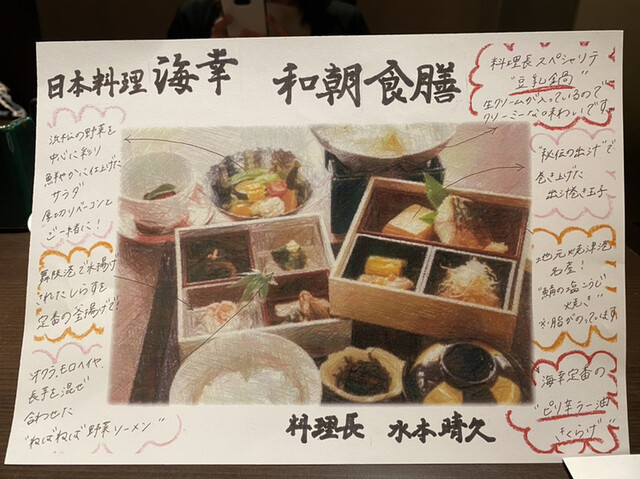 日本料理 海幸 和朝食膳
浜松の野菜を
中心に彩り
鮮やかに仕上げた
サラダ
厚切りベーコンと
ご一緒に!
舞阪港で水揚げ
されたしらすを
定番の釜揚げで!
オクラ、モロヘイヤ、
長芋を混ぜ
合わせた
"ねばねば野菜ソーメン"
料理長スペシャリテ
"豆乳鍋"
生クリームが入っているので
クリーミーな味わいです
"秘伝の出汁"で
巻き上げた
出汁巻き玉子
地元焼津港
名産!
"鯖の塩こうじ
焼き"
※脂がのっています
海幸定番の
"ピリ辛ラー油
きくらげ"
料理長 水本晴久